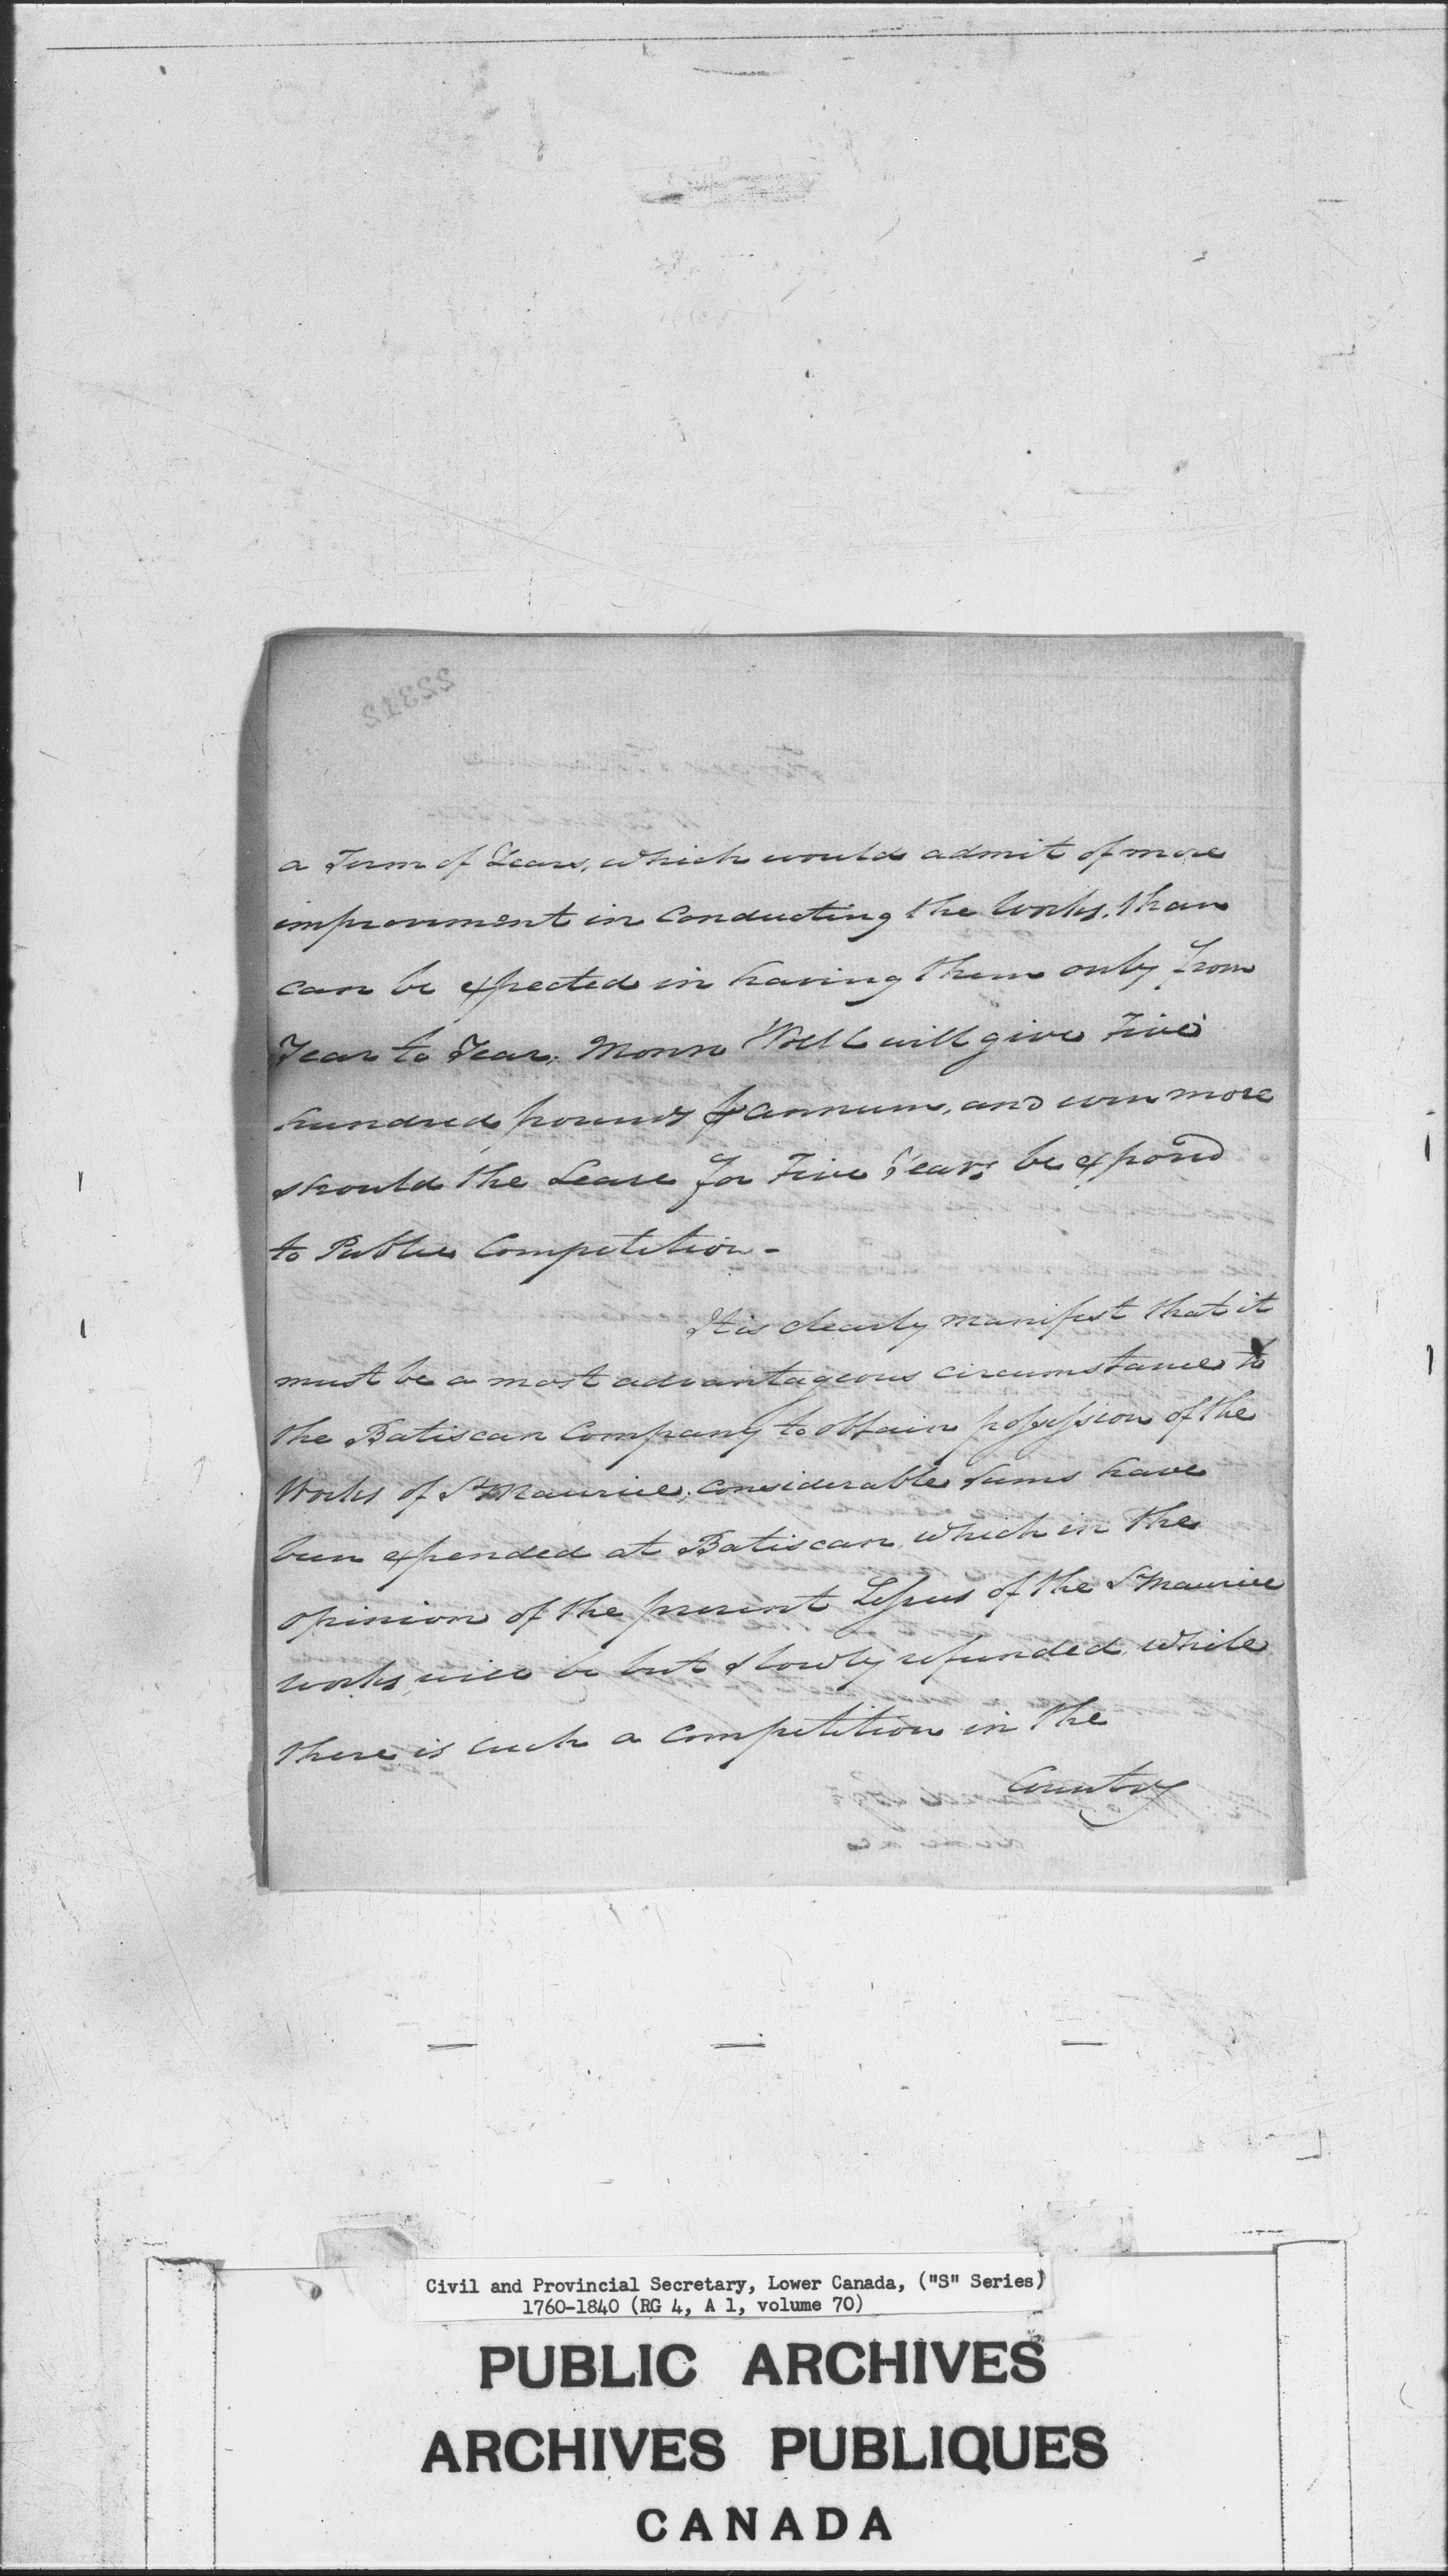 a Term of Years, which would admit of more
improvement in Conducting the Works, than
can be expected in having them only from
Year to Year; Monro & Bell will give Five
hundred pounds ⅌ annum, and even more
should the Lease for Five Years be expos'd
to Public Competition -
It is clearly manifest that it
must be a most advantageous circumstance to
the Batiscan Company to obtain possession of the
Works of St Maurice; considerable sums have
been expended at Batiscan, which in the
opinion of the present Lessees of the St Maurice
works, will be but slowly refunded, while
there is such a Competition in the
Country
22312
Civil and Provincial Secretary, Lower Canada, ("S" Series)
1760-1840 (RG 4, A 1, volume 70)
PUBLIC ARCHIVES
ARCHIVES PUBLIQUES
CANADA